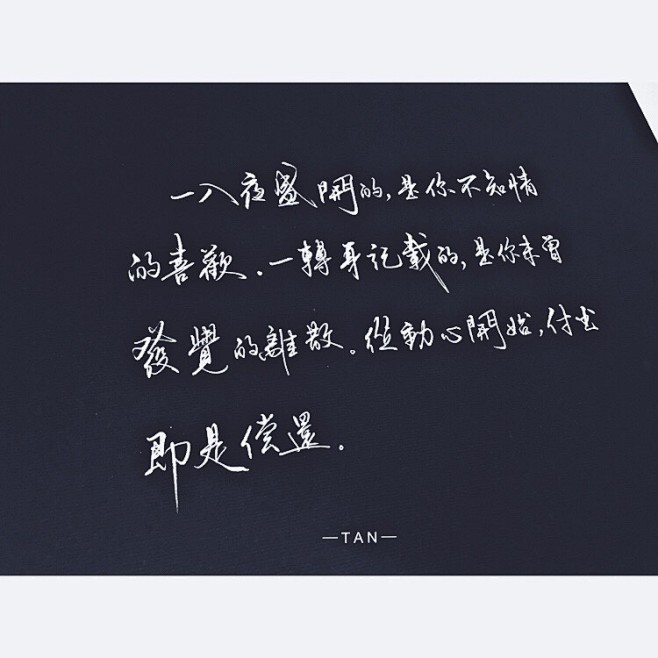 一入夜盛開的，是你不知情
的喜歡．一轉身記載的，是你未曾
發覺的離散。從動心開始，付出
即是偿還．
—TAN—